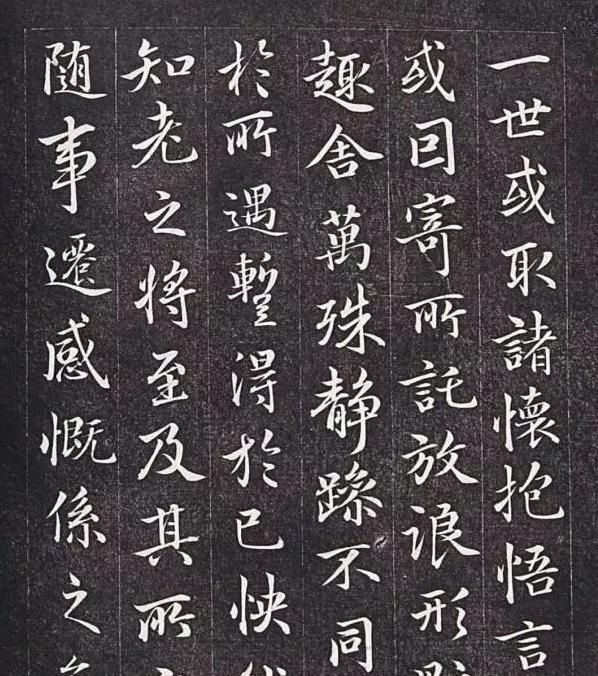 一世或取諸懷抱悟言
或因寄所託放浪形
趣舍萬殊静躁不同
於所遇蹔得於己快
知老之將至及其所
随事遷感慨係之